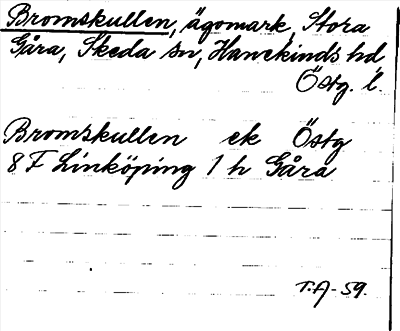 Bromskullen, ägomark, Stora
Gåra, Skeda sn, Hanekinds hd,
Östg. l.
Bromskullen ek Östg
8 F Linköping 1 h Gåra
T.A-59.